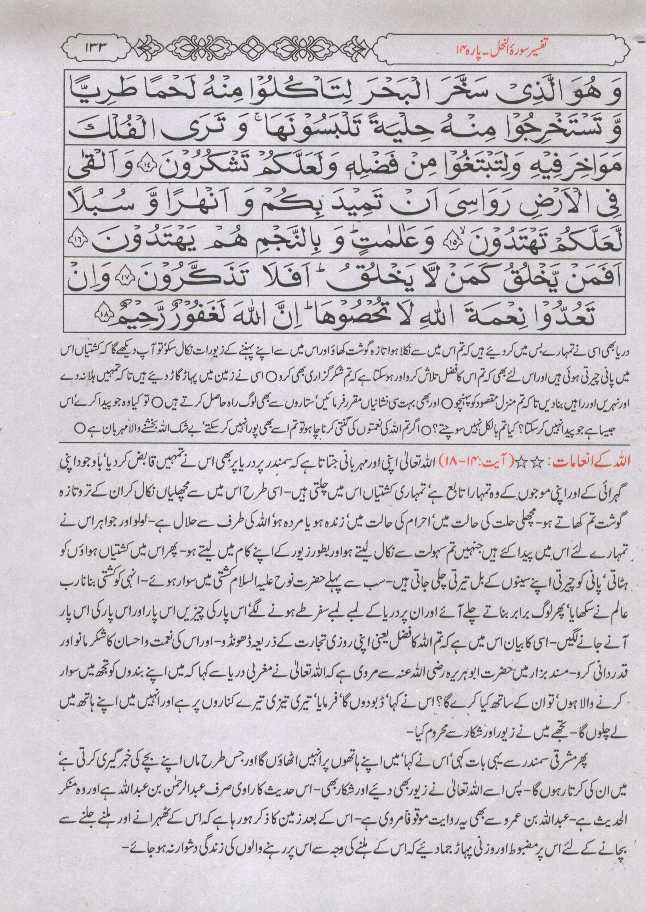 تفسیر سورۂ النحل۔ پارہ ۱۴
۱۳۳
وَ هُوَ الَّذِیْ سَخَّرَ الْبَحْرَ لِتَاْكُلُوْا مِنْهُ لَحْمًا طَرِیًّا
وَّ تَسْتَخْرِجُوْا مِنْهُ حِلْیَةً تَلْبَسُوْنَهَا ۚ وَ تَرَی الْفُلْكَ
مَوَاخِرَ فِیْهِ وَ لِتَبْتَغُوْا مِنْ فَضْلِهٖ وَ لَعَلَّكُمْ تَشْكُرُوْنَ ۝۱۴ وَ اَلْقٰی
فِی الْاَرْضِ رَوَاسِیَ اَنْ تَمِیْدَ بِكُمْ وَ اَنْهٰرًا وَّ سُبُلًا
لَّعَلَّكُمْ تَهْتَدُوْنَ ۝۱۵ وَ عَلٰمٰتٍ ؕ وَ بِالنَّجْمِ هُمْ یَهْتَدُوْنَ ۝۱۶
اَفَمَنْ یَّخْلُقُ كَمَنْ لَّا یَخْلُقُ ؕ اَفَلَا تَذَكَّرُوْنَ ۝۱۷ وَ اِنْ
تَعُدُّوْا نِعْمَةَ اللّٰهِ لَا تُحْصُوْهَا ؕ اِنَّ اللّٰهَ لَغَفُوْرٌ رَّحِیْمٌ ۝۱۸
دریا بھی اسی نے تمہارے بس میں کر دیئے ہیں کہ تم اس میں سے نکلا ہوا تازہ گوشت کھاؤ اور اس میں سے اپنے پہننے کے زیورات نکال سکو، تو آپ دیکھے گا کہ کشتیاں اس
میں پانی چیرتی ہوئی ہیں اور اس لئے بھی کہ تم اس کا فضل تلاش کرو اور ہو سکتا ہے کہ تم شکر گزاری بھی کرو ○ اسی نے زمین میں پہاڑ گاڑ دیئے ہیں تا کہ تمہیں ہلا نہ دے
اور نہریں اور راہیں بنا دیں تا کہ تم منزل مقصود کو پہنچو ○ اور بھی بہت سی نشانیاں مقرر فرمائیں، ستاروں سے بھی لوگ راہ حاصل کرتے ہیں ○ تو کیا وہ جو پیدا کرے اس
جیسا ہے جو پیدا نہیں کر سکتا؟ کیا تم بالکل نہیں سوچتے؟ ○ اگر تم اللہ کی نعمتوں کی گنتی کرنا چاہو تو تم اسے بھی پورا نہیں کر سکتے، بے شک اللہ بخشنے والا مہربان ہے ○
اللہ کے انعامات: ☆☆ (آیت: ۱۴-۱۸) اللہ تعالیٰ اپنی اور مہربانی جتاتا ہے کہ سمندر پر دریا پر بھی اس نے تمہیں قابض کر دیا، باوجود اپنی
گہرائی کے اور اپنی موجوں کے وہ تمہارا تابع ہے، تمہاری کشتیاں اس میں چلتی ہیں۔ اسی طرح اس میں سے مچھلیاں نکال کر ان کے تروتازہ
گوشت تم کھاتے ہو۔ مچھلی حلت کی حالت میں، احرام کی حالت میں، زندہ ہو یا مردہ ہو، اللہ کی طرف سے حلال ہے۔ لولو اور جواہر اس نے
تمہارے لئے اس میں پیدا کئے ہیں جنہیں تم سہولت سے نکال لیتے ہو اور بطور زیور کے اپنے کام میں لیتے ہو۔ پھر اس میں کشتیاں ہواؤں کو
ہٹاتی، پانی کو چیرتی اپنے سینوں کے بل تیرتی چلی جاتی ہیں۔ سب سے پہلے حضرت نوح علیہ السلام کشتی میں سوار ہوئے۔ انہی کو کشتی بنانا رب
عالم نے سکھایا، پھر لوگ برابر بناتے چلے آئے اور ان پر دریا کے لمبے لمبے سفر طے ہونے لگے، اس پار کی چیزیں اس پار اور اس پار کی اس پار
آنے جانے لگیں۔ اسی کا بیان اس میں ہے کہ تم اللہ کا فضل یعنی اپنی روزی تجارت کے ذریعہ ڈھونڈو۔ اور اس کی نعمت و احسان کا شکر مانو اور
قدر دانی کرو۔ مسند بزار میں حضرت ابو ہریرہ رضی اللہ عنہ سے مروی ہے کہ اللہ تعالیٰ نے مغربی دریا سے کہا کہ میں اپنے بندوں کو تجھ میں سوار
کرنے والا ہوں، تو ان کے ساتھ کیا کرے گا؟ اس نے کہا، ڈبو دوں گا، فرمایا، تیری تیزی تیرے کناروں پر ہے اور انہیں میں اپنے ہاتھ میں
لے چلوں گا۔ تجھے میں نے زیور اور شکار سے محروم کیا۔
پھر مشرقی سمندر سے یہی بات کہی، اس نے کہا، میں اپنے ہاتھوں پر انہیں اٹھاؤں گا اور جس طرح ماں اپنے بچے کی خبر گیری کرتی ہے،
میں ان کی کرتا رہوں گا۔ پس اسے اللہ تعالیٰ نے زیور بھی دیئے اور شکار بھی۔ اس حدیث کا راوی صرف عبدالرحمٰن بن عبداللہ ہے اور وہ منکر
الحدیث ہے۔ عبداللہ بن عمرو سے بھی یہ روایت موقوفاً مروی ہے۔ اس کے بعد زمین کا ذکر ہو رہا ہے کہ اس کے ٹھہرانے اور ہلنے جلنے سے
بچانے کے لئے اس پر مضبوط اور وزنی پہاڑ جما دیئے کہ اس کے ہلنے کی وجہ سے اس پر رہنے والوں کی زندگی دشوار نہ ہو جائے۔